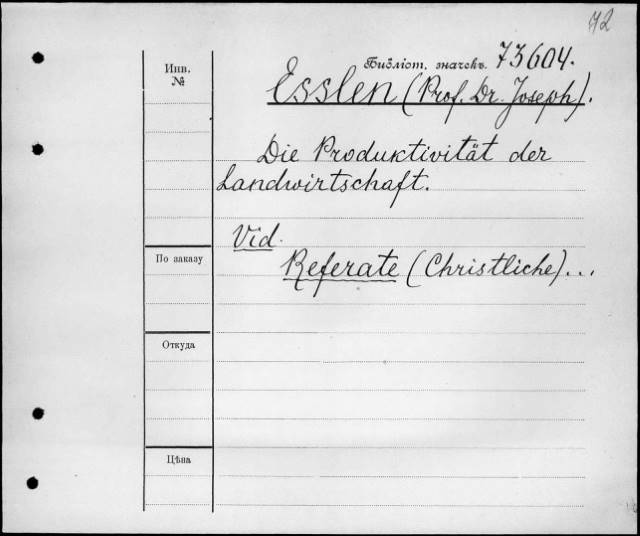 42
Инв.
№
Библіот. значекъ. 73604.
Esslen (Prof. Dr. Joseph).
Die Produktivität der
Landwirtschaft.
Vid.
По заказу
Referate (Christliche)...
Откуда
Цѣна